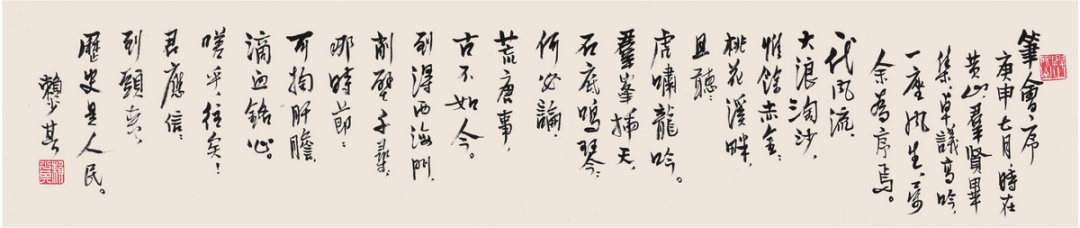 筆會序
庚申七月,時在
黄山,羣賢畢
集,草議高吟,
一座風生,属
余為序焉。
一代風流,
大浪淘沙,
惟餘赤金;
桃花溪畔
且聽:
虎嘯龍吟。
羣峯插天,
石底鳴琴;
何必論,
荒唐事,
古不如今。
到得西海門,
削壁千尋,
哪時節:
可掬肝膽,
滴血銘心。
嗟乎!往矣!
君應信:
到頭來,
歷史是人民。
賴少其